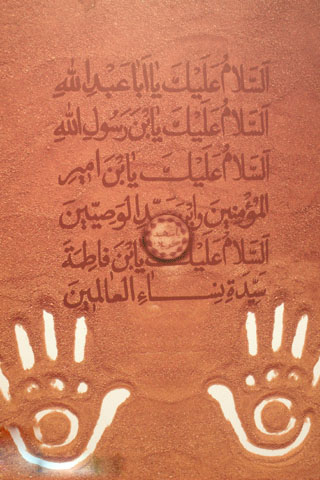 اَلسَّلامُ عَلَيْكَ يا اَبا عَبْدِ اللهِ
اَلسَّلامُ عَلَيْكَ يَابْنَ رَسُولِ اللهِ
اَلسَّلامُ عَلَيْكَ يَابْنَ اَميرِ
الْمُؤْمِنينَ وَابْنَ سَيِّدِ الْوَصِيّينَ
اَلسَّلامُ عَلَيْكَ يَابْنَ فاطِمَةَ
سَيِّدَةِ نِساءِ الْعالَمينَ